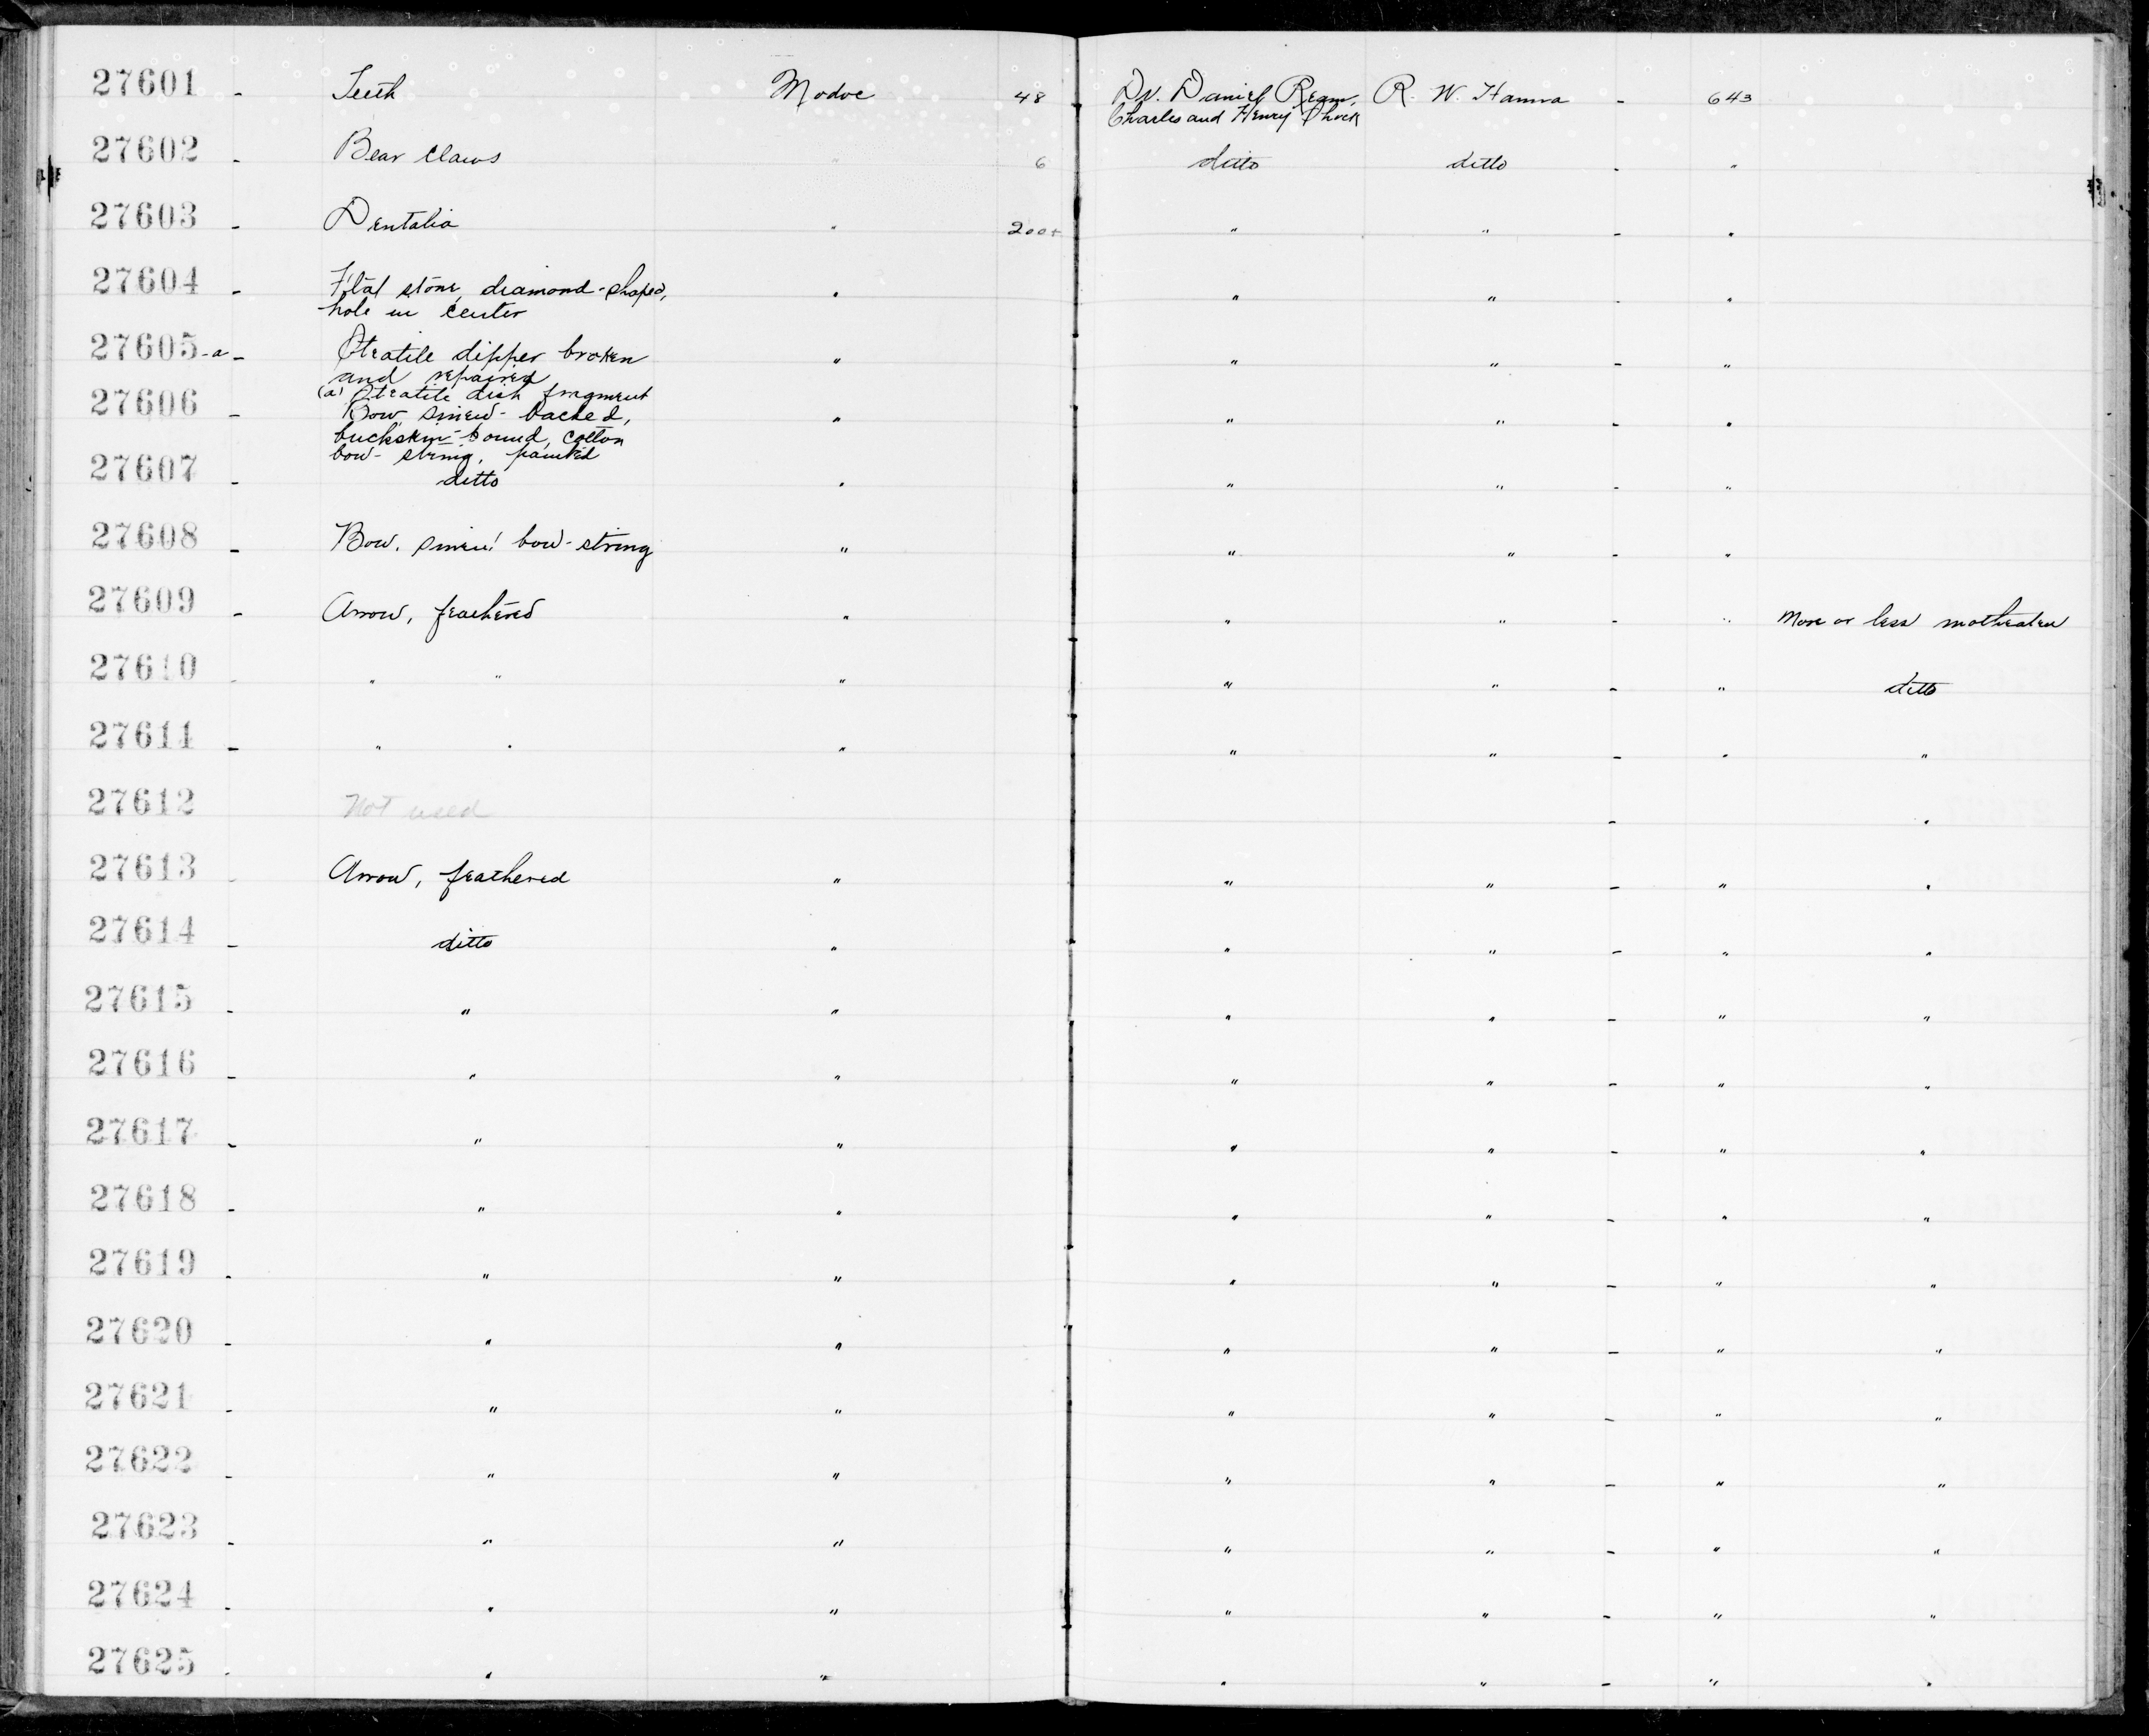 27601 - Teeth Modoc 48 Dr. Daniel Ream, R. W. Hanna - 643
Charles and Henry Shock
27602 - Bear claws " 6 ditto ditto - "
27603 - Dentalia " 200+ " " - "
27604 - Flat stone, diamond-shaped, " " " - "
hole in center
27605-a - Steatite dipper broken " " " - "
and repaired
(a) Steatite dish fragment
27606 - Bow, sinew-backed, " " " - "
buckskin-bound, cotton
bow-string, painted
27607 - ditto " " " - "
27608 - Bow, sinew bow-string " " " - "
27609 - Arrow, feathered " " " - " More or less motheaten
27610 - " " " " " - " ditto
27611 - " " " " " - " "
27612 Not used - "
27613 - Arrow, feathered " " " - " "
27614 - ditto " " " - " "
27615 - " " " " - " "
27616 - " " " " - " "
27617 - " " " " - " "
27618 - " " " " - " "
27619 - " " " " - " "
27620 - " " " " - " "
27621 - " " " " - " "
27622 - " " " " - " "
27623 - " " " " - " "
27624 - " " " " - " "
27625 - " " " " - " "